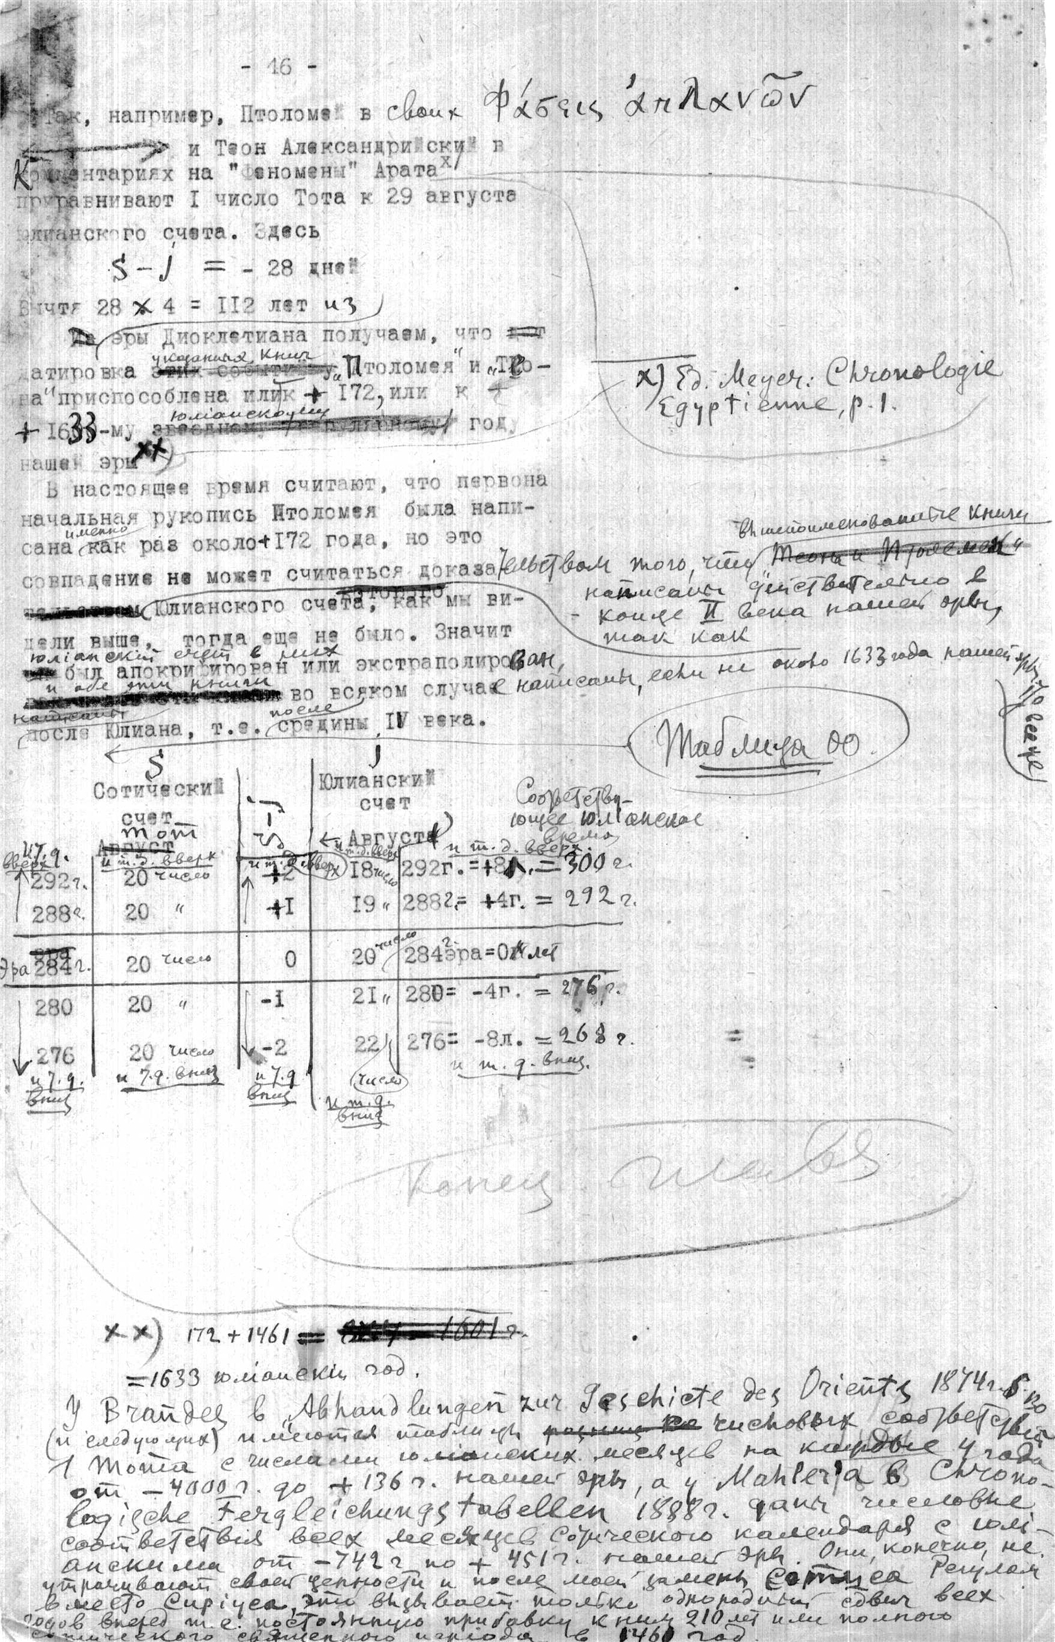 - 16 -
Так, например, Птоломей в своих Φάσεις ἀπλανῶν
и Теон Александрийский в
Комментариях на "Феномены" Арата x)
приравнивают I число Тота к 29 августа
юлианского счета. Здесь
S - j = - 28 дней
Вычтя 28 x 4 = II2 лет из
эры Диоклетиана получаем, что
указанных книг
датировка этих событий „Птоломея" и „Тео-
на" приспособлена или к + I72, или к
юлианскому
+ 1633-му году
нашей эры xx)
x) Ed. Meyer: Chronologie
Egyptienne, p. 1.
В настоящее время считают, что первона
начальная рукопись Птоломея была напи-
именно
сана как раз около +I72 года, но это
совпадение не может считаться доказа-
тельством того, что вышепоименованные книги
написаны действительно в
конце II века нашей эры,
так как
Юлианского счета, как мы ви-
дели выше, тогда еще не было. Значит
юлианский счет в них
был апокрифирован или экстраполирован,
и обе эти книги
во всяком случае написаны, если не около 1633 года нашей эры, то
после
после Юлиана, т.е. средины IV века.
Таблица 00.
S j
Сотический счет
Тот
S-j
Юлианский счет
Августа
Соответству-
ющее юлианское
время
и т.д. вверх и т.д. вверх и т.д. вверх и т.д. вверх и т.д. вверх
292г. 20 число +2 18 число 292г. = +8л. = 300 г.
288г. 20 " +I I9 " 288г. = +4г. = 292 г.
Эра 284г. 20 число 0 20 число 284г. эра = 0 лет
280 20 " -I 2I " 280 = -4г. = 276 г.
276 20 число -2 22 276 = -8л. = 268 г.
и т.д. вниз и т.д. вниз и т.д. вниз число и т.д. вниз и т.д. вниз.
Конец главы
xx) 172 + 1461 =
= 1633 юлианский год.
У Brandes в Abhandlungen zur Geschichte des Orients 1874г.
(и следующих) имеются таблицы числовых соответствий
1 Тота с числами юлианских месяцев на каждые 4 года
от - 4000 г. до + 136 г. нашей эры, а у Mahler'а в Chrono-
logische Fergleichungstabellen 1888 г. даны числовые
соответствия всех месяцев Сотического календаря с юли-
анскими от - 742 г. по + 451 г. нашей эры. Они, конечно, не
утрачивают своей ценности и после моей замены Регулом
вместо Сириуса, это вызывает только однородный сдвиг всех
годов вперед т.е. постоянную прибавку к ним 210 лет или полного
периода в 1460 год